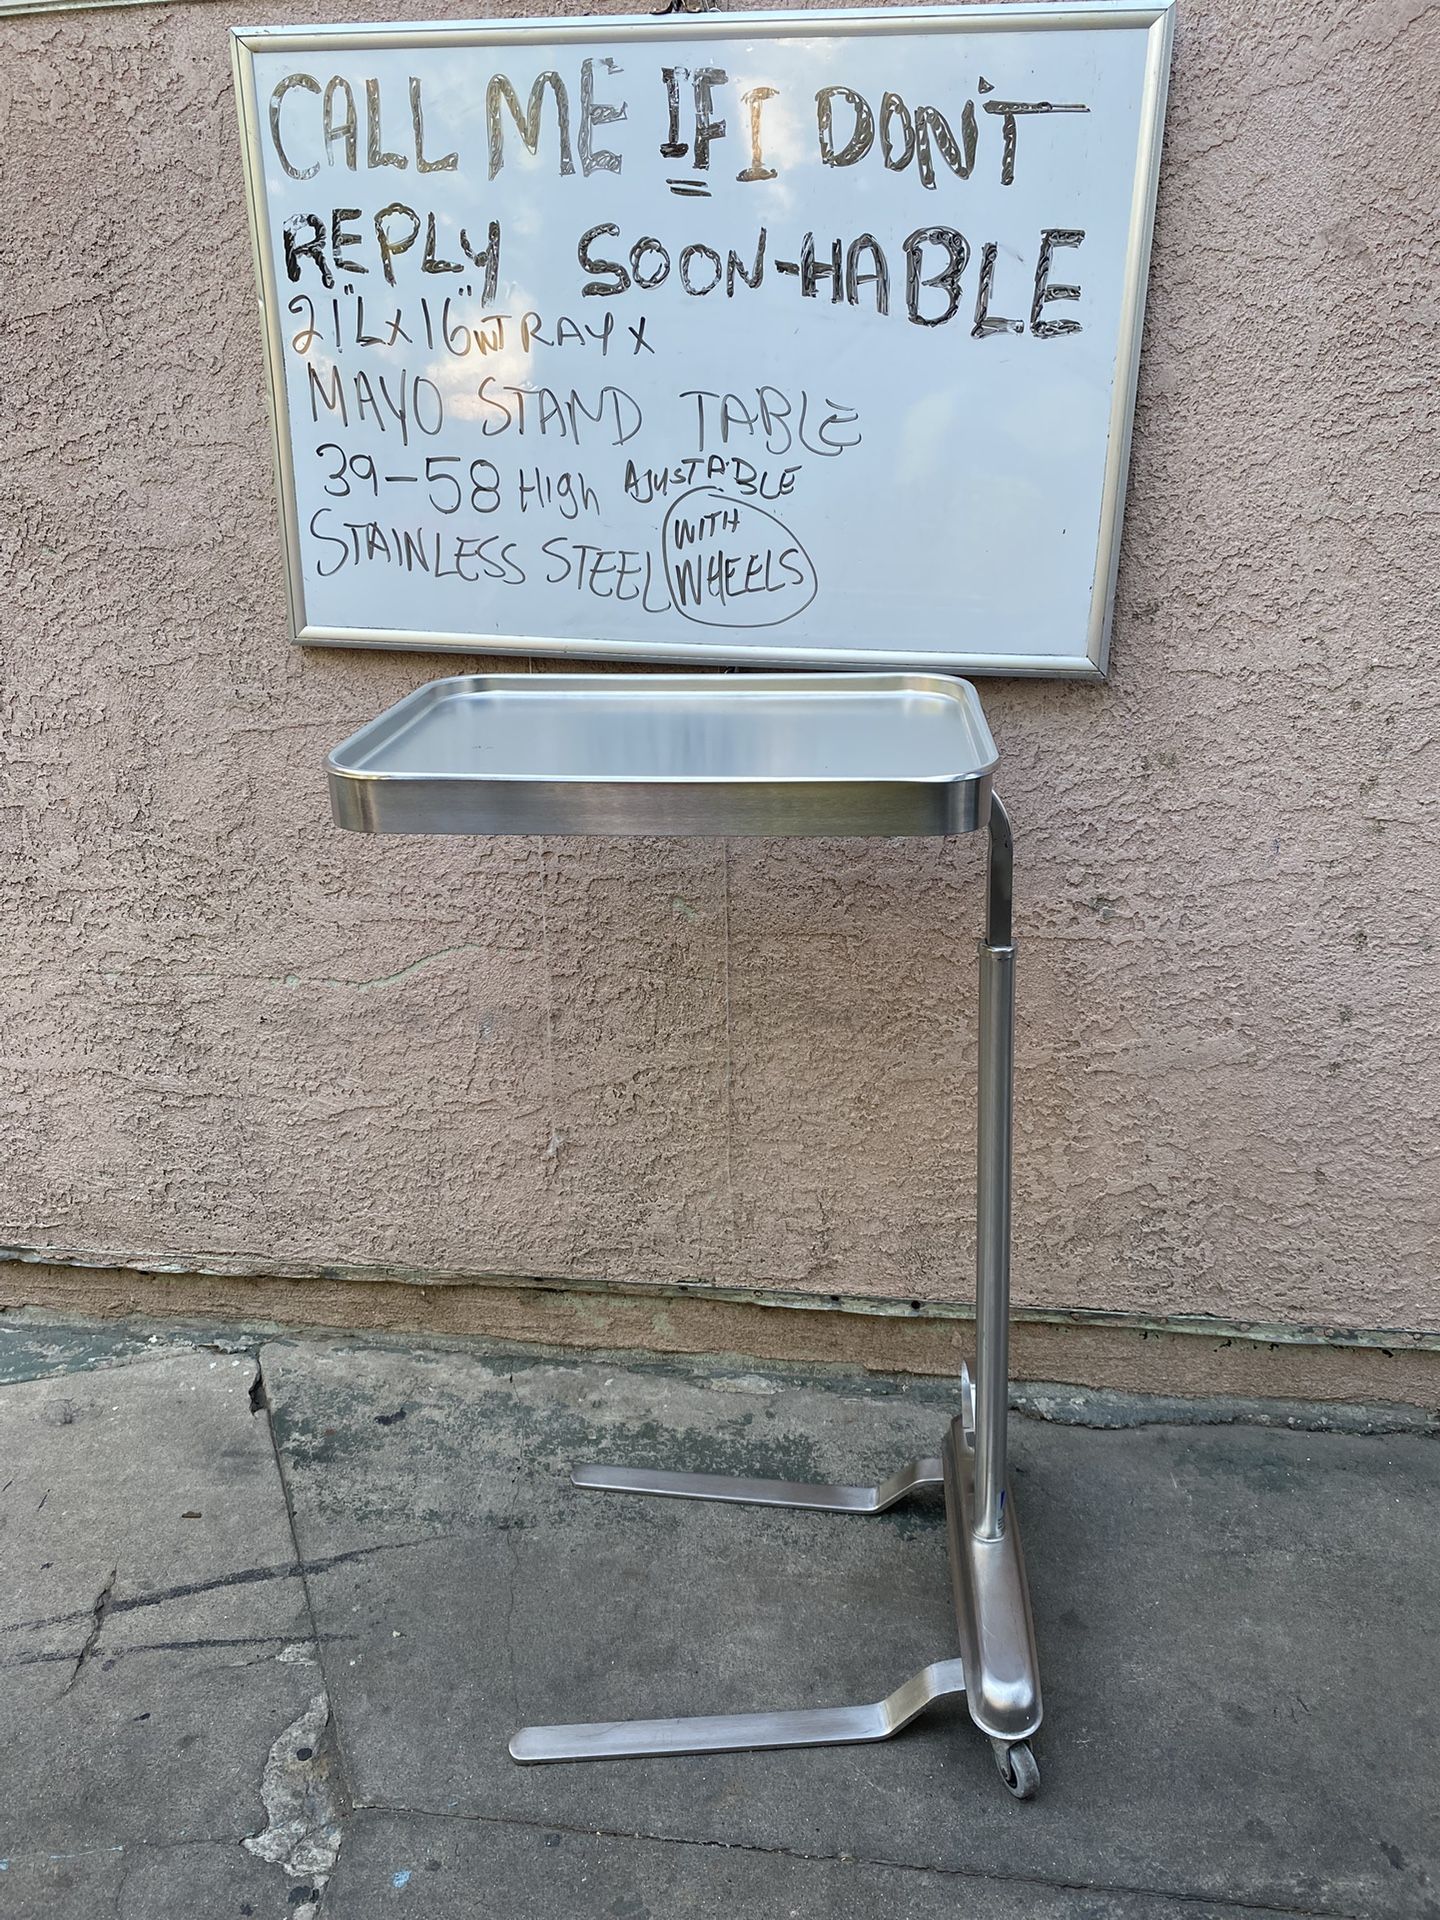 CALL ME IF I DON'T
REPLY SOON-HABLE
21"L x 16"W TRAY X
MAYO STAND TABLE
39-58 High AJUSTABLE
STAINLESS STEEL WITH
WHEELS